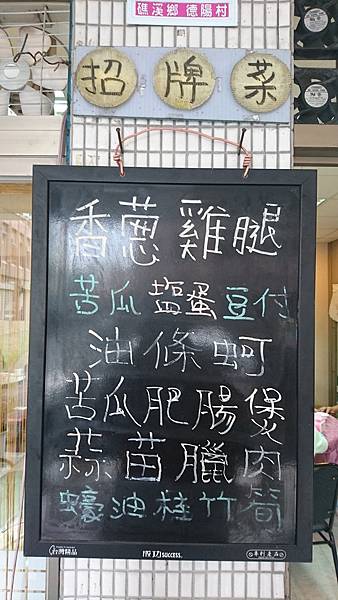 礁溪鄉 德陽村
招牌菜
香蔥雞腿
苦瓜塩蛋豆付
油條蚵
苦瓜肥腸煲
蒜苗臘肉
蠔油桂竹筍
台灣精品
成功 SUCCESS.